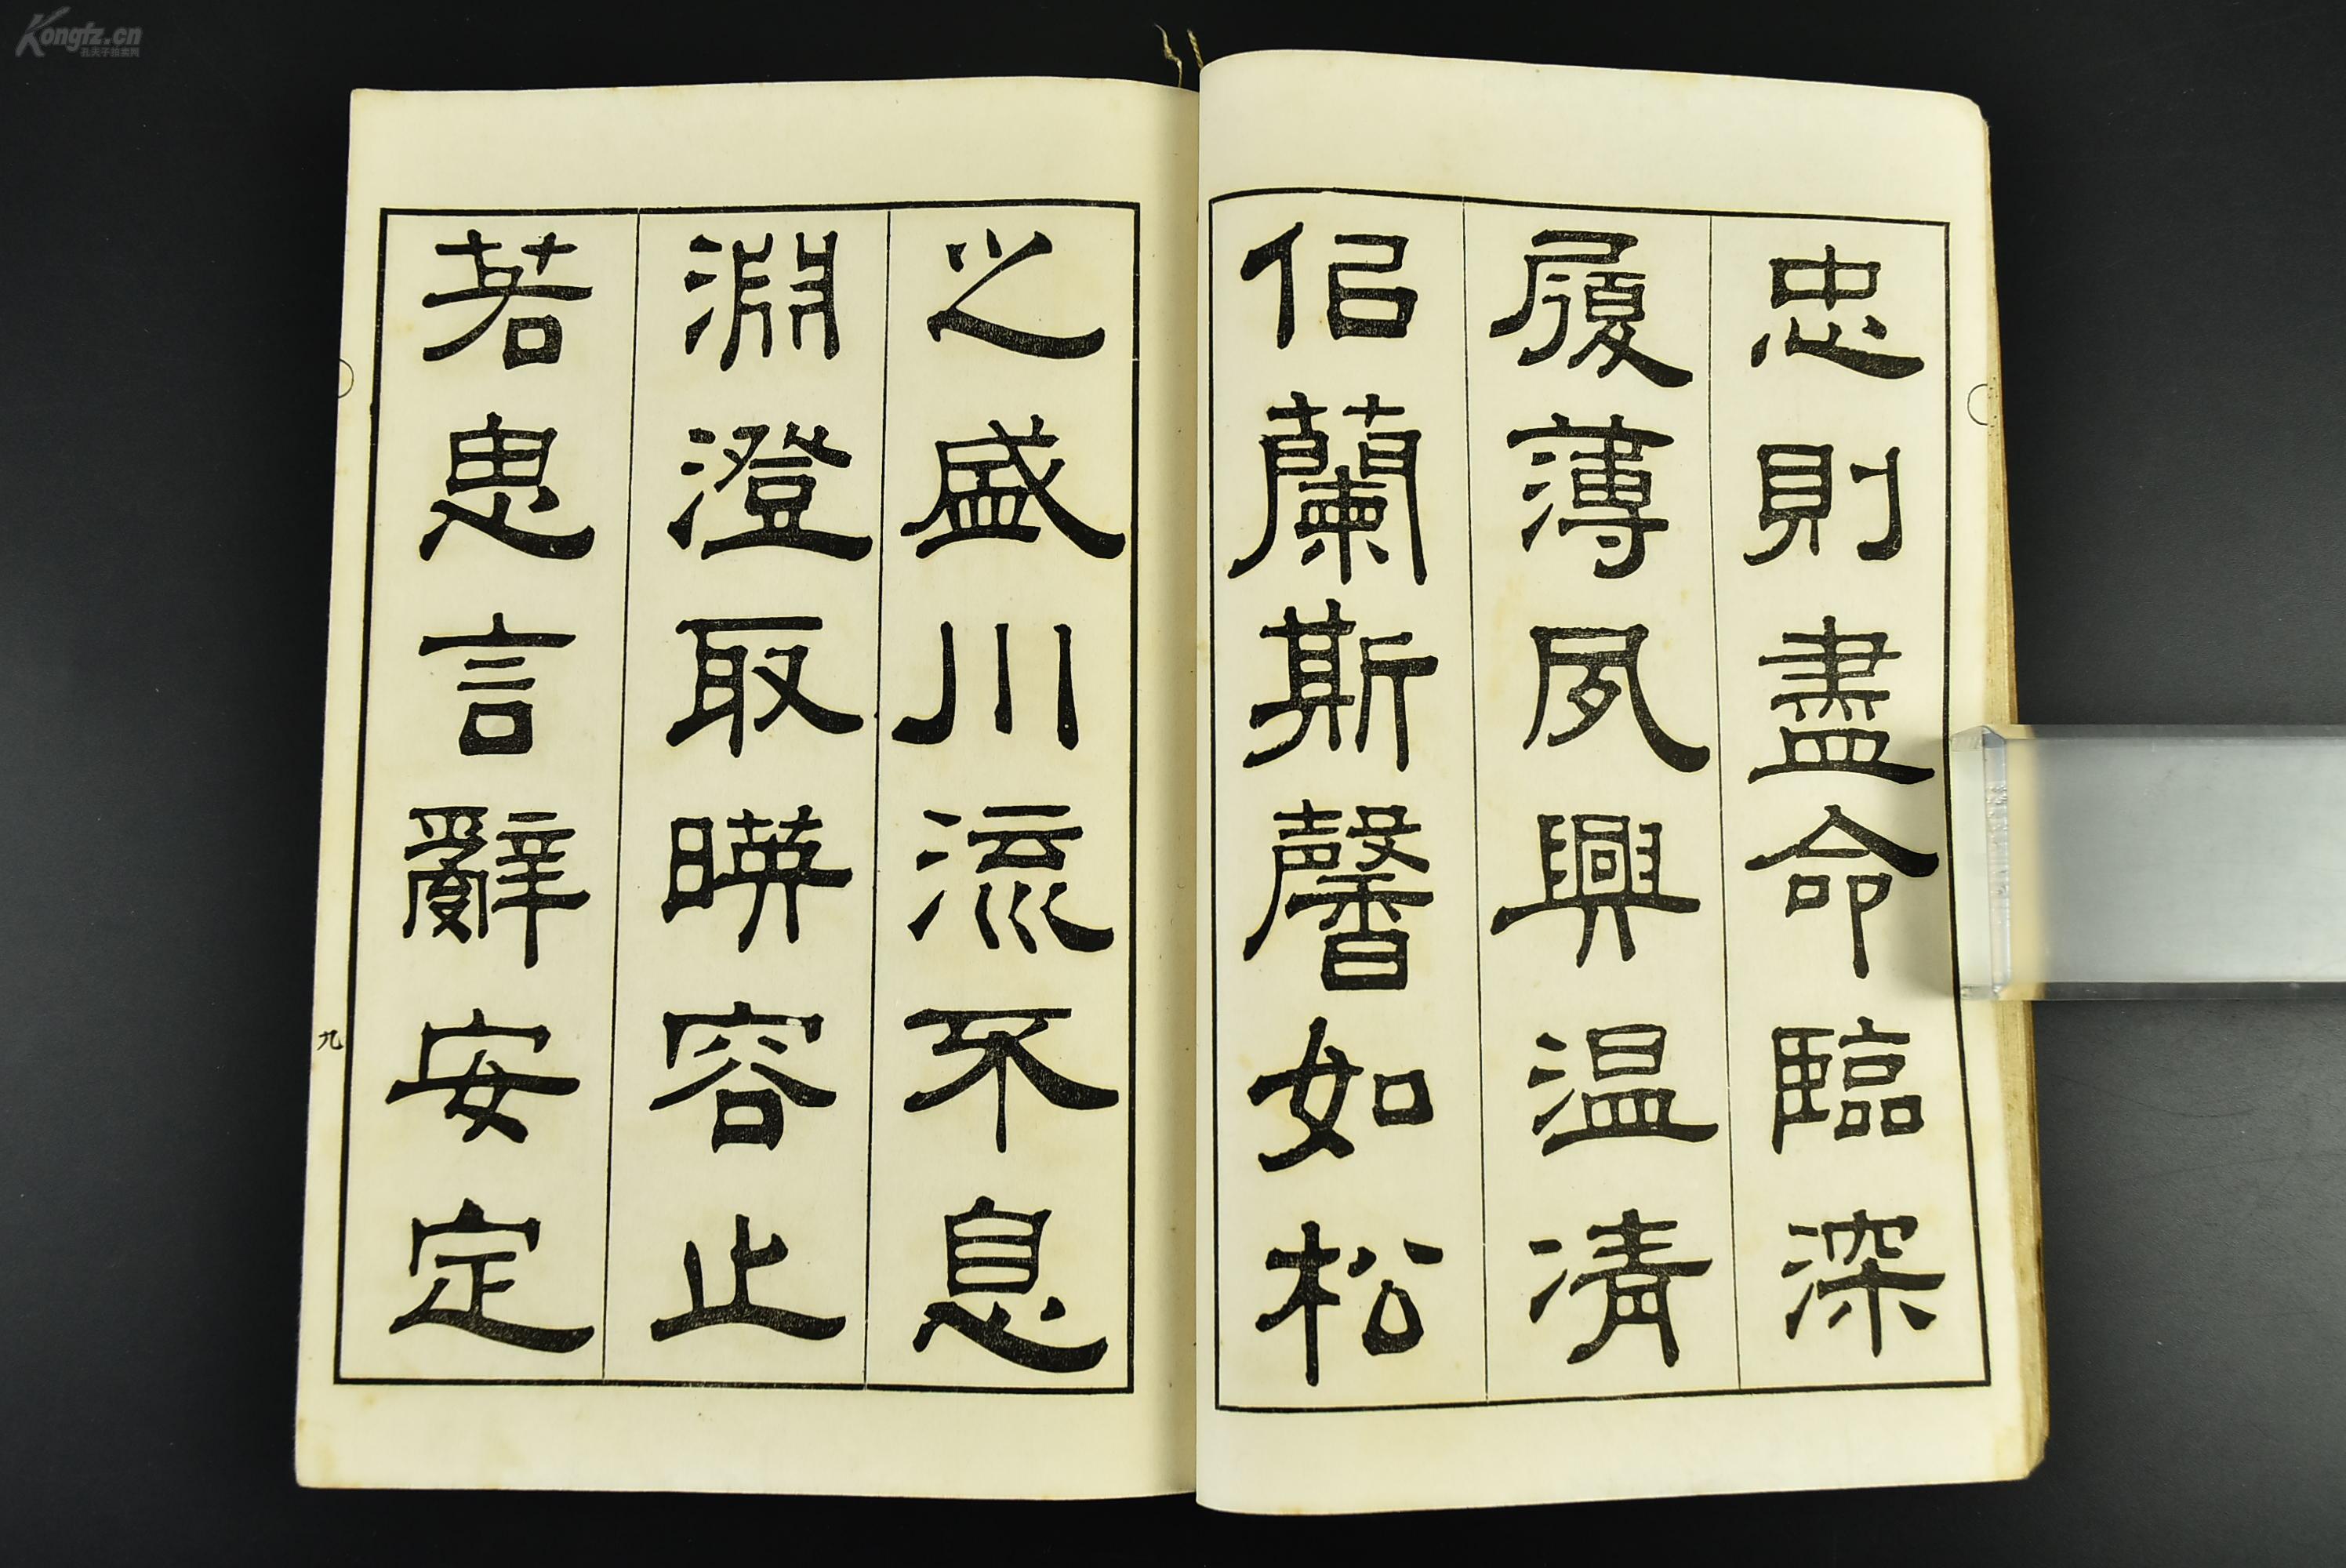 忠則盡命臨深
履薄夙興温凊
佀蘭斯馨如松
之盛川流不息
淵澄取暎容止
若思言辭安定
九
Kongfz.cn
孔夫子拍卖网